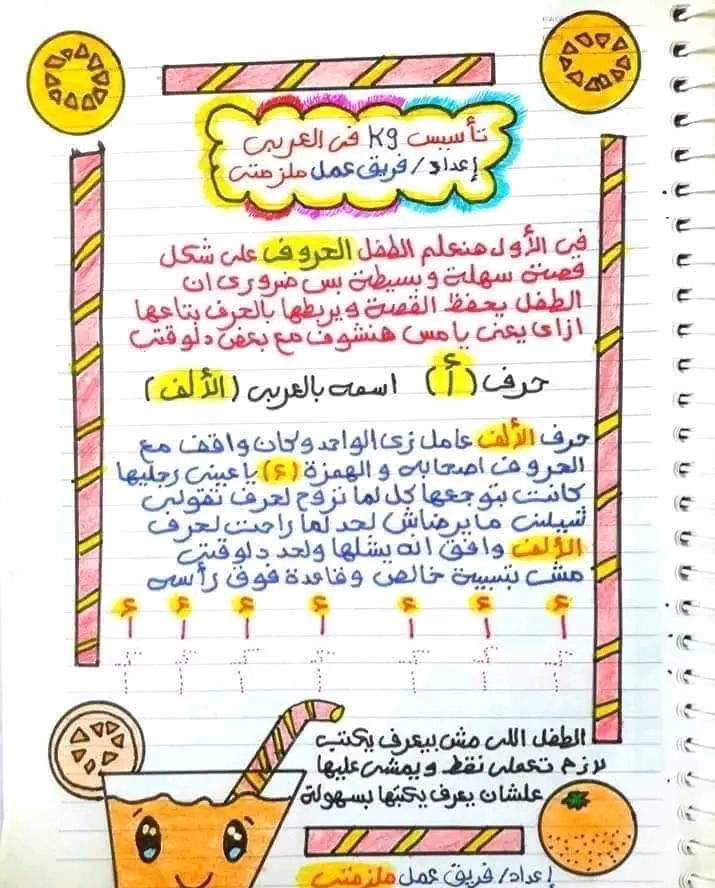 تأسيس Kg فى العربى
إعداد/ فريق عمل ملزمتى
فى الأول هنعلم الطفل الحروف على شكل
قصة سهلة وبسيطة بس ضرورى ان
الطفل يحفظ القصة ويربطها بالحرف بتاعها
ازاى يعنى يا مس هنشوف مع بعض دلوقتى
حرف (أ) اسمه بالعربى (الألف)
حرف الألف عامل زى الواحد وكان واقف مع
الحروف اصحابه والهمزة (ء) ياعينى رجليها
كانت بتوجعها كل لما تروح لحرف تقوله
شيلنى ما يرضاش لحد لما راحت لحرف
الألف وافق انه يشلها ولحد دلوقتى
مش بتسيبه خالص وقاعدة فوق رأسه
أ أ أ أ أ أ أ
أ أ أ أ أ أ أ
الطفل اللى مش بيعرف يكتب
لازم تعملى نقط ويمشى عليها
علشان يعرف يكتبها بسهولة
إعداد/ فريق عمل ملزمتى